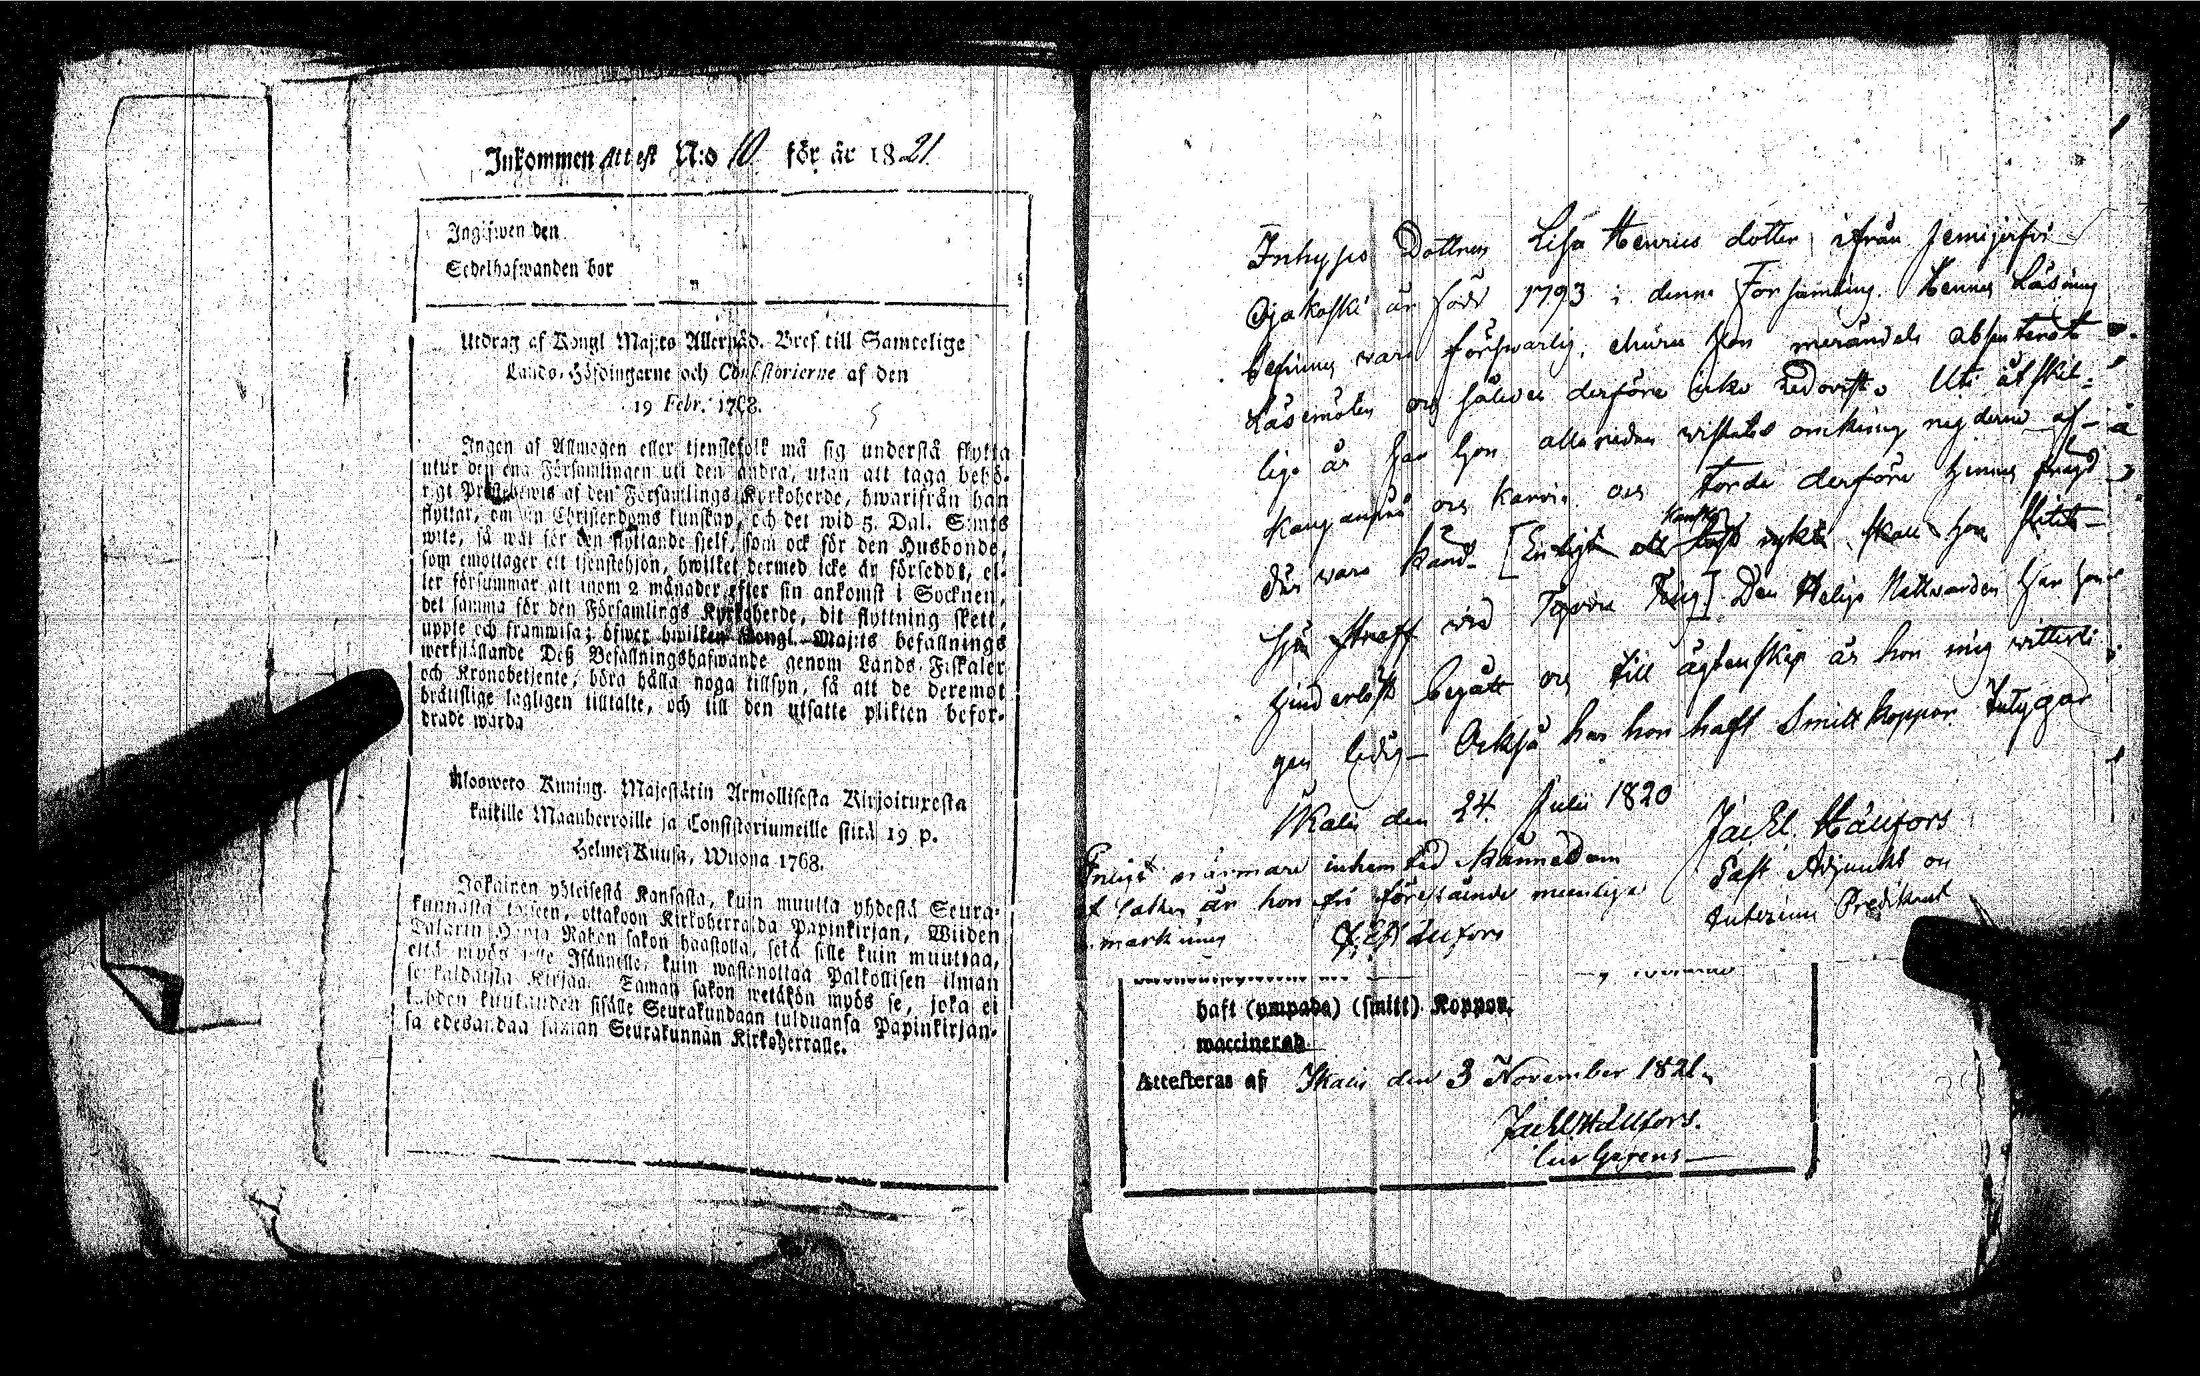 Inkommen Attest N:o 10 för år 1821.
Ingifwen den
Sedelhafwanden bor
Utdrag af Kongl Maj:ts Allernåd. Bref till Samtelige
Lands-Höfdingarne och Consistorierne af den
19 Febr. 1768.
Ingen af Allmogen eller tjenstefolk må sig understå flytta
utur den ena Församlingen uti den andra, utan att taga behö-
rigt Prestebewis af den Församlings Kyrkoherde, hwarifrån han
flyttar, om sin Christendoms kunskap, och det wid 5. Dal. S:mts
wite, så wäl för den flyttande sjelf, som ock för den Husbonde,
som emottager ett tjenstehjon, hwilket dermed icke är försedd, el-
ler försummar att inom 2 månader efter sin ankomst i Socknen,
det samma för den Församlings Kyrkoherde, dit flyttning skett,
uppte och framwisa; öfwer hwilken Kongl. Maj:ts befallnings
werkställande Deß Befallningshafwande genom Lands-Fiskaler
och Kronobetjente, böra hålla noga tillsyn, så att de deremot
brättslige lagligen tilltalte, och till den utsatte plikten befor-
drade warda
Ulosweto Kuning. Majestätin Armollisesta Kirjoituxesta
kaikille Maanherroille ja Consistoriumeille siitä 19 p.
Helme-Kuusa, Wuona 1768.
Jokainen yhteisestä Kansasta, kuin muutta yhdestä Seura-
kunnasta toiseen, ottakoon Kirkoherralda Papinkirjan, Wiiden
Talarin Hopia Rahan sakon haastolla, sekä sille kuin muuttaa,
että myös sille Isännelle, kuin wastanottaa Palkollisen ilman
senkaldaista Kirjaa. Saman sakon wetäkön myös se, joka ei
kahden kuukauden sisälle Seurakundaan tulduansa Papinkirjan-
sa edesandaa saman Seurakunnan Kirkoherralle.
Inhyses Dottren Lisa Henrics dotter ifrån Jemijerfvi
Ojakoski är född 1793 i denna Församling. Hennes Läsning
befinnes vara försvarlig, ehuru hon merändels absenterat
Läsemöten och således derföre icke redovist. Uti åtskil-
lige år har hon allaredan vistats omkring negderne af
Kanganpää och Karvia och torde derföre hennes frägd
der vara känd. [Enligt skall hon
straff vid Tyrvis Ting] Den Heliga Nattvarden har hon
hinderlöst begått och till ägtenskap är hon mig vitterli-
gen ledig— Också har hon haft Smittkoppor. Intygar
Ikalis den 24. Julii 1820
Jac El. Hällfors
Past Adjunkt och
Interims Predikant
Enligt närmare inhemtad kännedom
af saken är hon fri förestående
J. El. Hällfors
haft (ympade) (smitt) Koppor.
waccinerad.
Attesteras af Ikalis den 3 November 1821.
Jac El Hällfors.